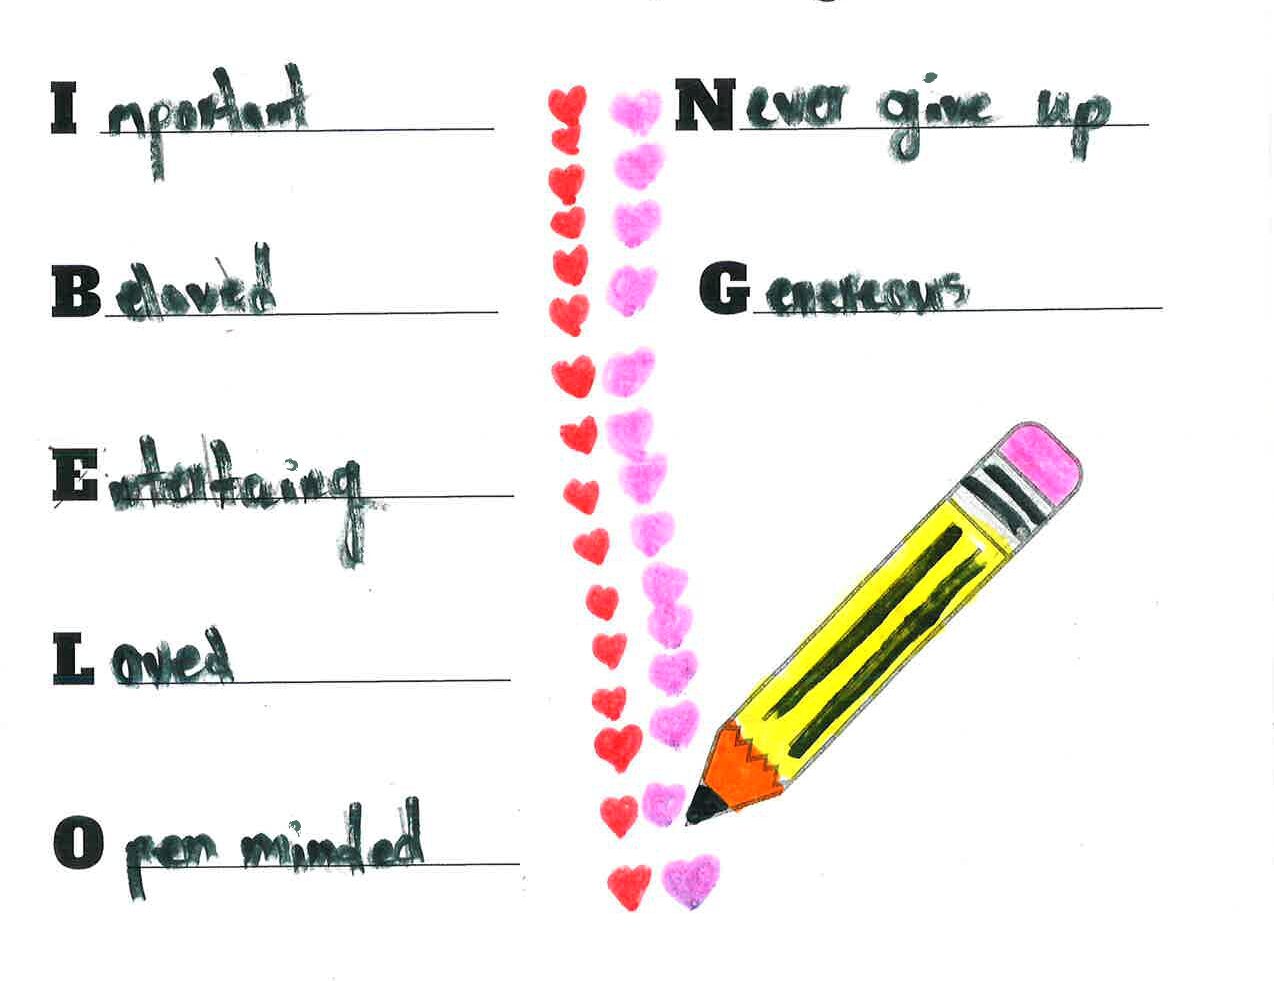 Inportant
Beloved
Entertaing
Loved
Open minded
Never give up
Genereous